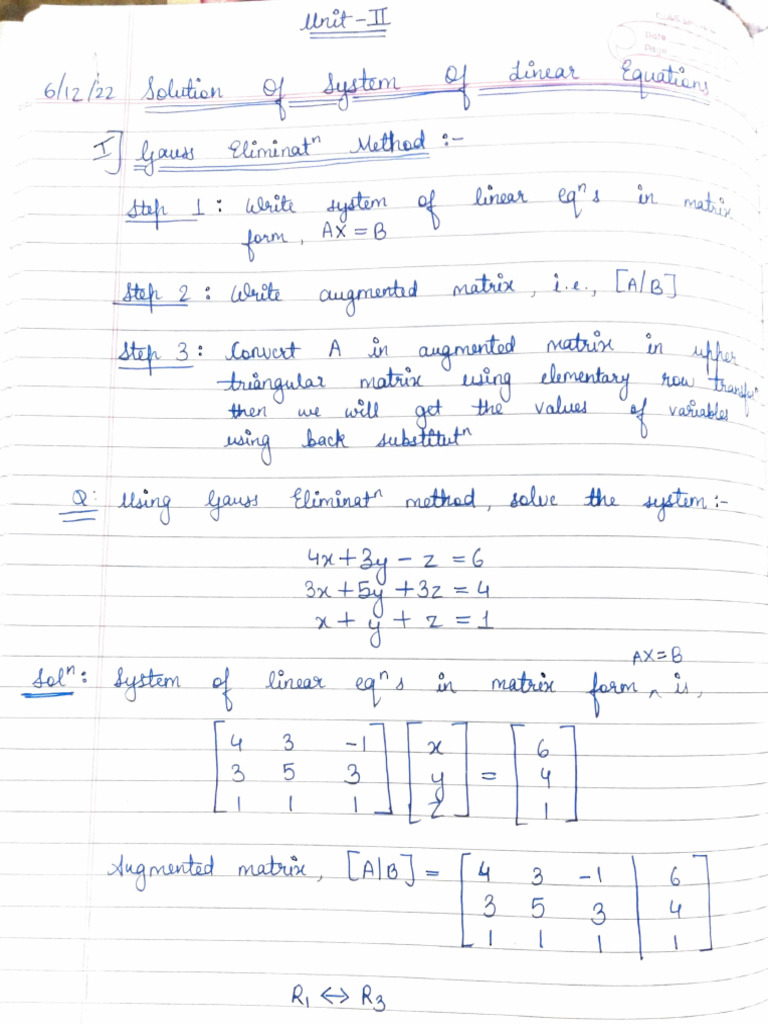 Unit-II
Date
Page
6/12/22 Solution Of System Of Linear Equations
I] Gauss Eliminatⁿ Method :-
Step 1 : Write system of linear eqⁿs in matrix
form, AX = B
Step 2 : Write augmented matrix, i.e., [A/B]
Step 3 : Convert A in augmented matrix in upper
triangular matrix using elementary row transfⁿ
then we will get the values of variables
using back substitutⁿ
Q: Using Gauss Eliminatⁿ method, solve the system :-
4x + 3y - z = 6
3x + 5y + 3z = 4
x + y + z = 1
AX = B
Solⁿ: System of linear eqⁿs in matrix form ^ is,
[4 3 -1] [x] [6]
[3 5 3] [y] = [4]
[1 1 1] [z] [1]
Augmented matrix, [A|B] = [4 3 -1 | 6]
[3 5 3 | 4]
[1 1 1 | 1]
R₁ ↔ R₃